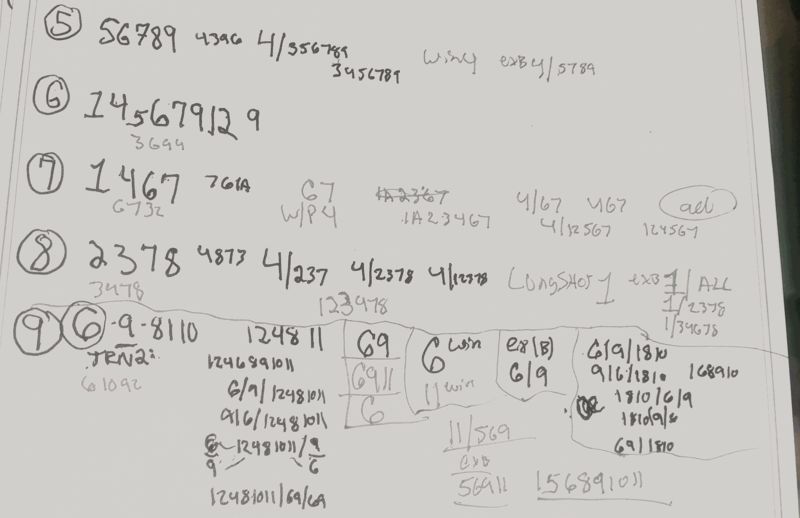 ⑤ 56789 4396 4/356789 win4 exB4/5789
3456789
⑥ 14567912 9
3694
⑦ 1467 761A 67 1A2367 4/67 467 ad
6732 W/P4 1A23467 4/12567 124567
⑧ 2378 4873 4/237 4/2378 4/12378 LongShot 1 exB 1/ALL
3478 123478 1/2378
1/34678
⑨ ⑥-9-8110 124811 69 6 win ex(B) 6/9/1810
TRN2: 1246891011 6911 11 win 6/9 9/6/1810 168910
61092 6/9/12481011 6 1810/6/9
9/6/12481011 11/569 1810/9/6
6/9 12481011/9/6 exB 69/1810
12481011/69/69 56911 156891011